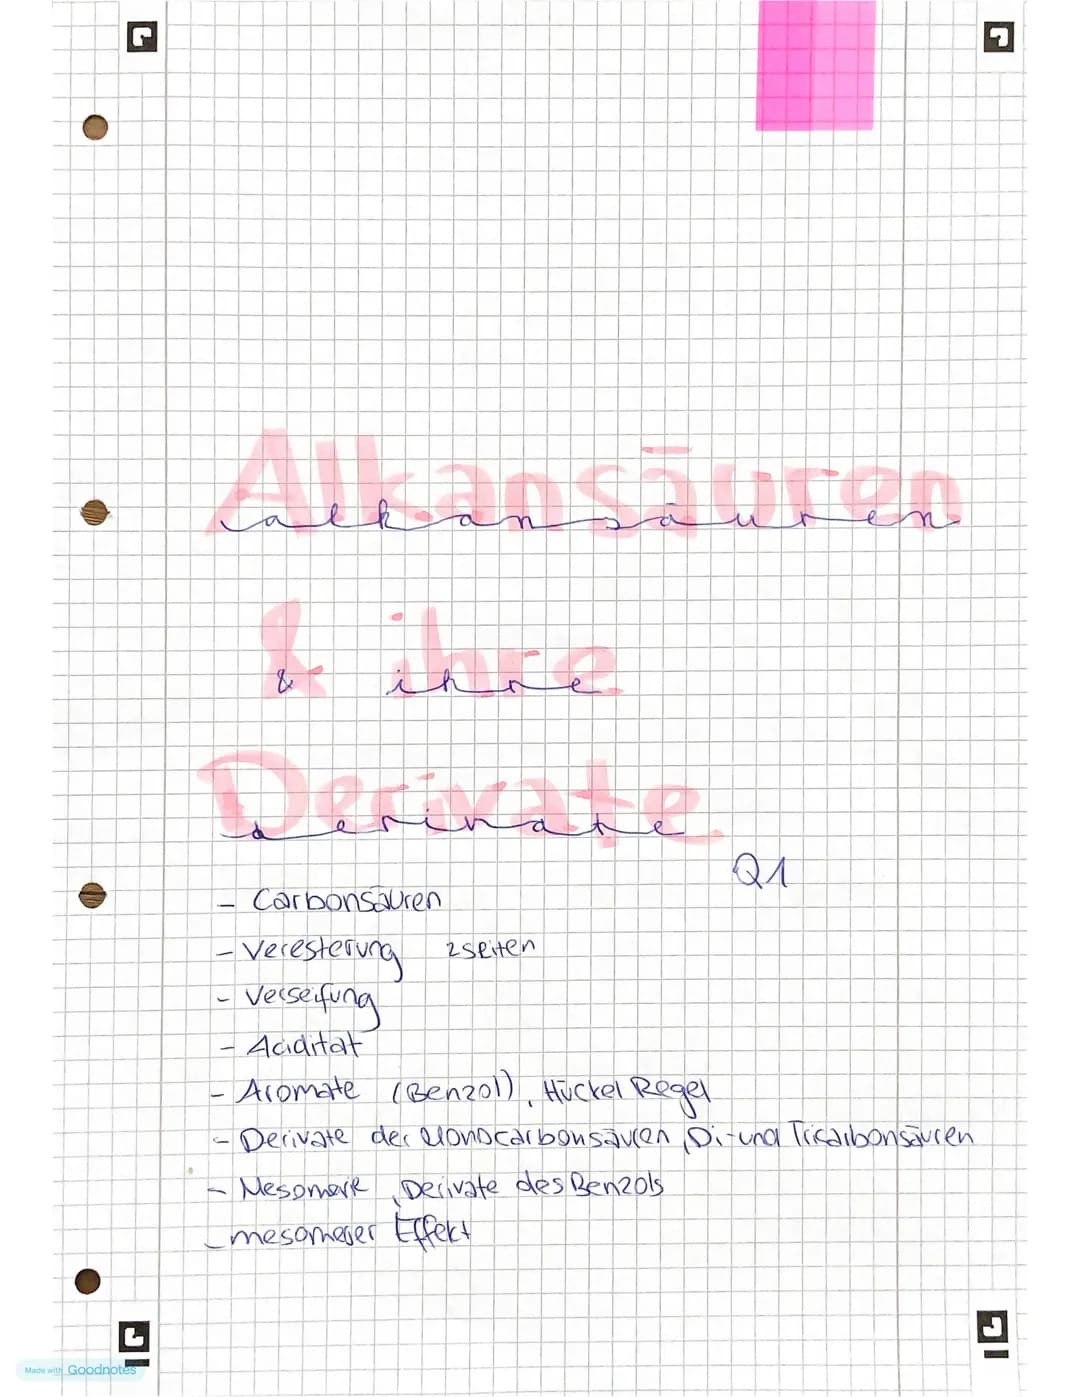 Alkansäuren
alkansäuren
& ihre
& ihre
Derivate
derivate
Q1
- Carbonsäuren
- Veresterung 2 seiten
- Verseifung
- Acidität
- Aromate (Benzol), Hückel Regel
- Derivate der Monocarbonsäuren, Di- und Tricarbonsäuren
- Mesomerie, Derivate des Benzols
- mesomerer Effekt
Made with Goodnotes